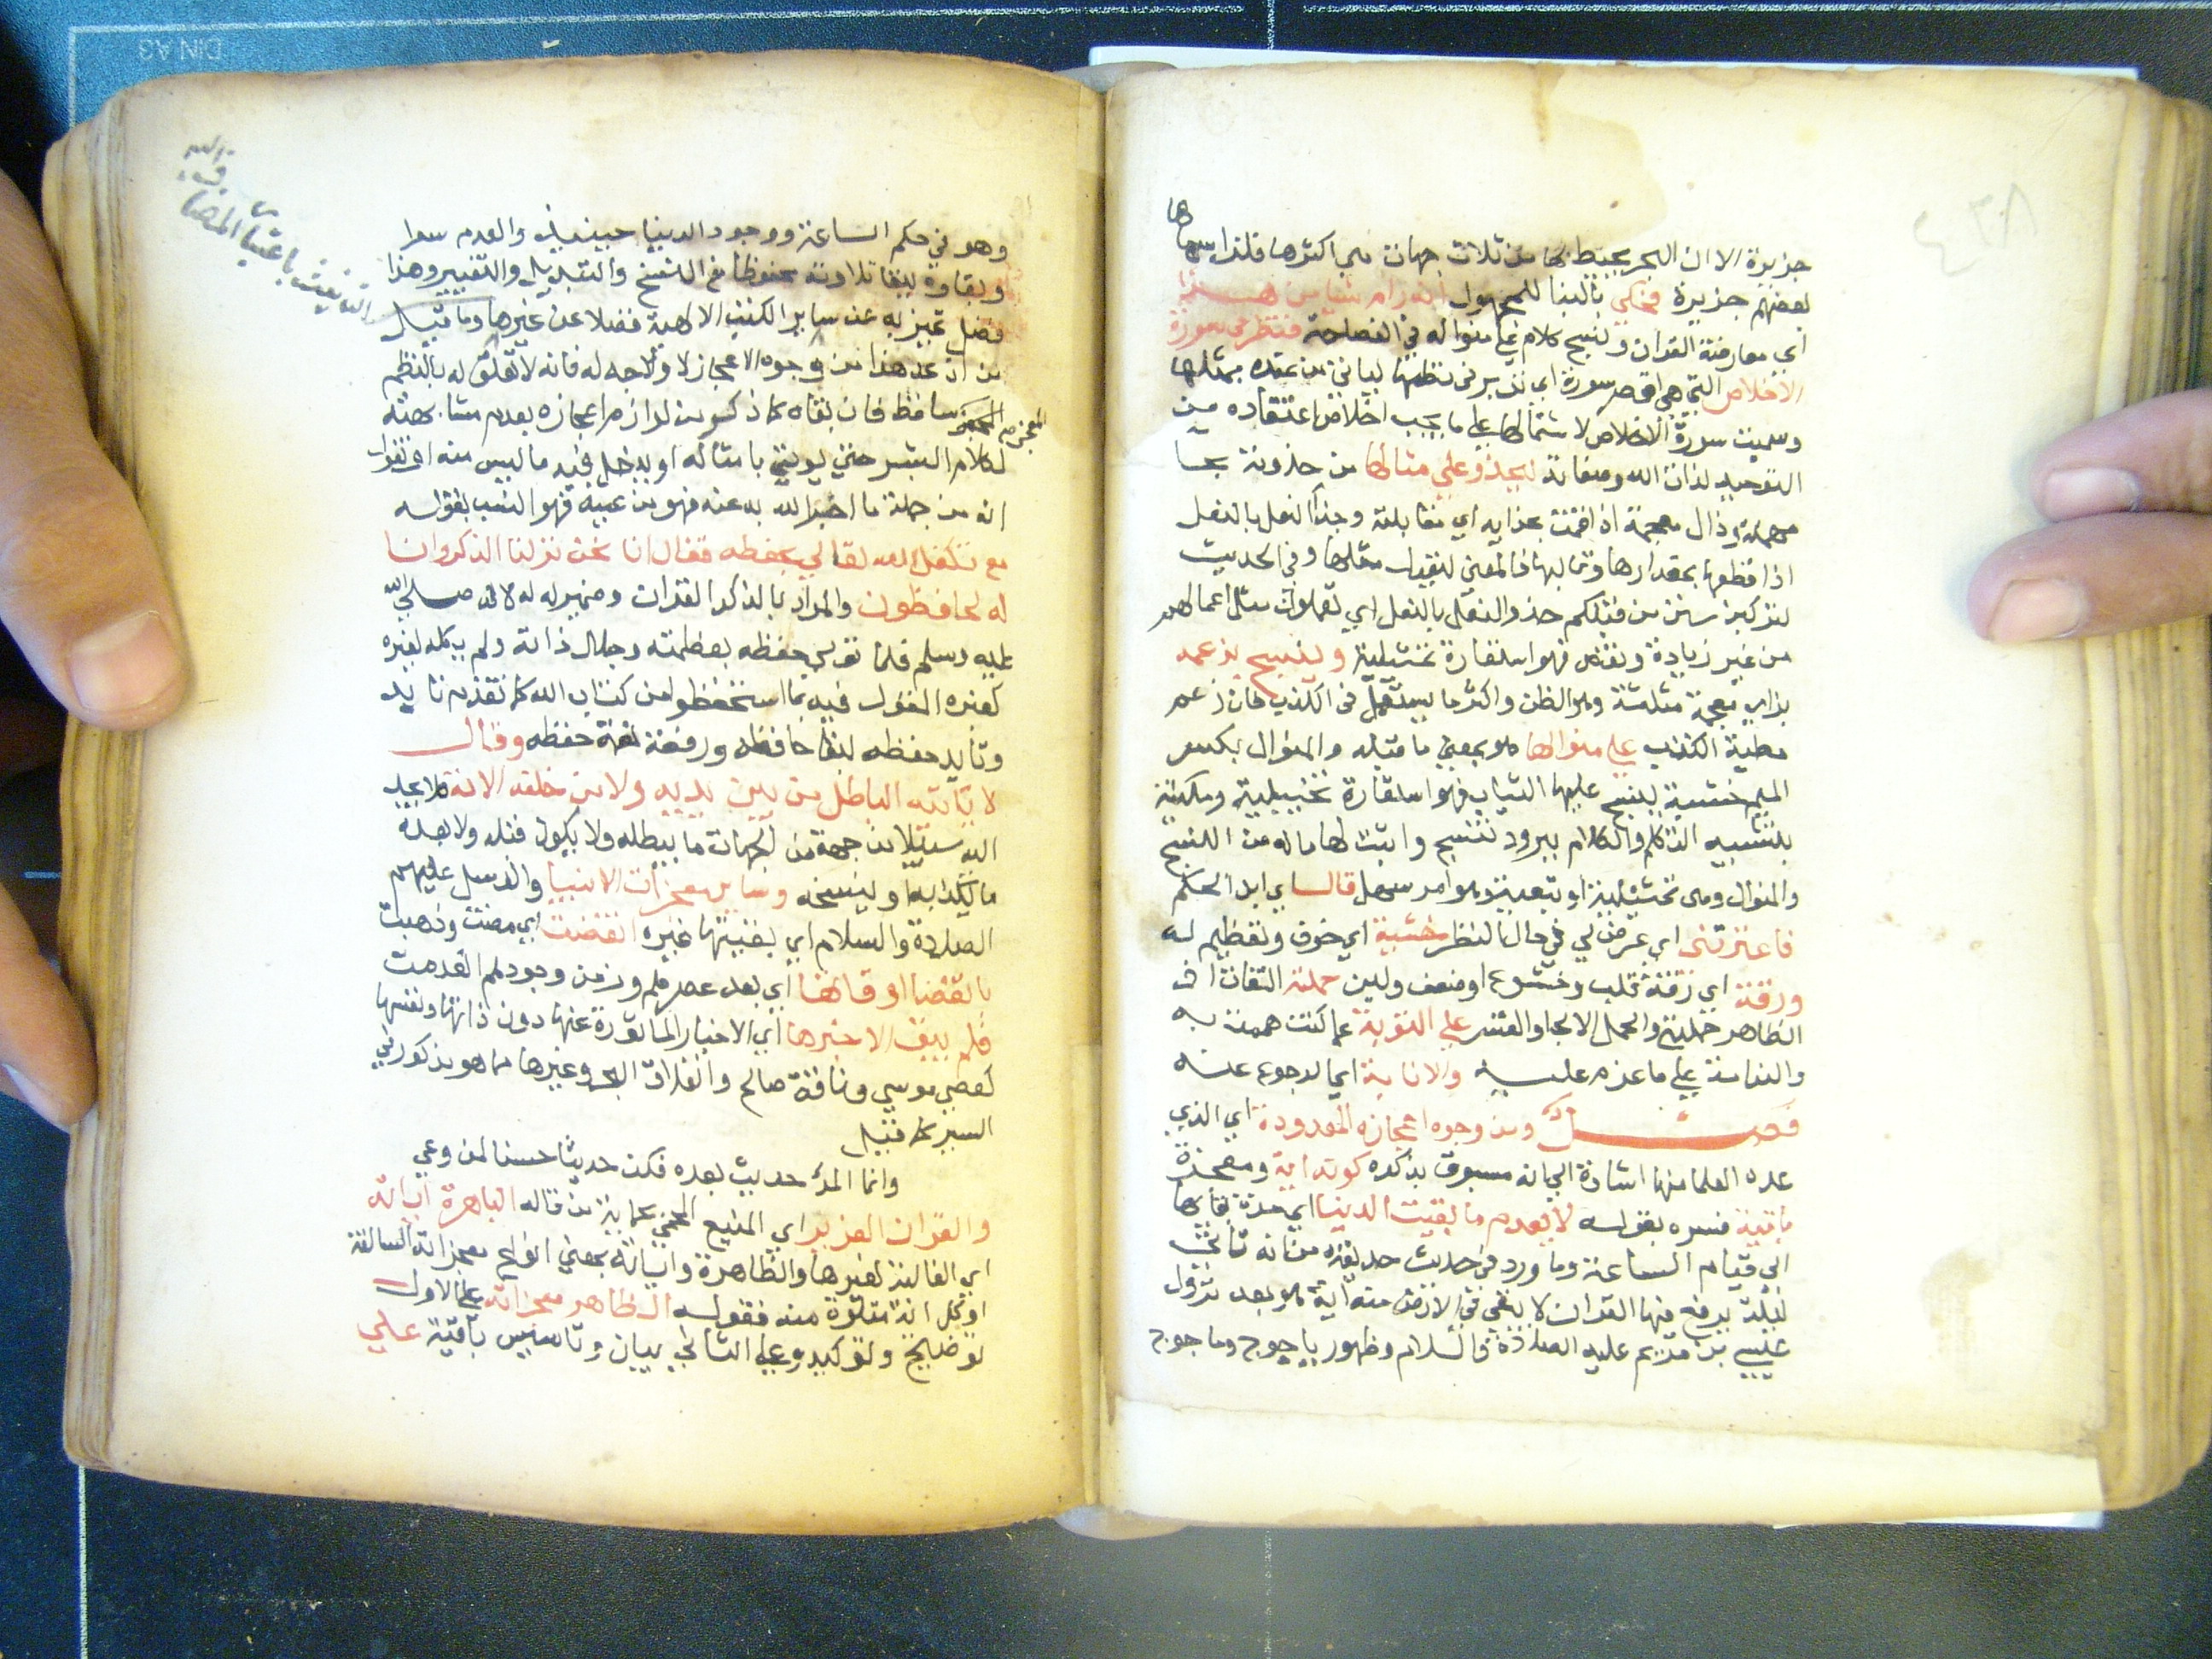 ٤٣٨
جزيرة الا ان البحر يحيط بها من ثلاث جهات هي اكثرها فلذا سماها
بعضهم جزيرة فحكي بالبنا للمجهول انه رام شيا من هذا
اي معارضة القران ونسج كلام علي منواله في الفصاحة فنظر في سورة
الاخلاص التي هي اقصر سورة اي تدبر في نظمها لياتي من عنده بمثلها
وسميت سورة الاخلاص لاشتمالها علي ما يجب اخلاص اعتقاده من
التوحيد لذات الله وصفاته ليحذو علي مثالها من حذوته بحا
مهملة وذال معجمة اذا قمت بحذايه اي مقابلته وحذا النعل بالنعل
اذا قطعها بمقدارها وقالبها فالمعني ليقول مثلها وفي الحديث
لتركبن سنن من قبلكم حذو النعل بالنعل اي تعملون مثل اعمالهم
من غير زيادة ونقص فهو استعارة تمثيلية وينسج بزعمه
بزاي معجمة مثلثة وهو الظن واكثر ما يستعمل في الكذب فان زعم
مطية الكذب علي منوالها هو بمعني ما قبله والمنوال بكسر
الميم خشبة ينسج عليها الثياب فهو استعارة تخييلية ومكنية
بتشبيه التكلم والكلام ببرود تنسج واثبت لها ماله من النسج
والمنوال وهي تمثيلية او تبعية وهو امر سهل قال اي ابن الحكم
فاعترتني اي عرض لي في حال النظر خشية اي خوف وتعظيم له
ورقة اي رقة قلب وخشوع او ضعف ولين حملته التفات اذ
الظاهر حملتني والحمل الالجا والقسر علي التوبة عما كنت هممت به
والندامة علي ما عزم عليه والانابة اي الرجوع عنه
فصل ومن وجوه اعجازه المعدودة اي الذي
عده العلما منها اشارة الي انه مسبوق بذكره كونه اية ومعجزة
باقية فسره بقوله لا يعدم ما بقيت الدنيا اي مدة بقايها
الي قيام الساعة وما ورد في حديث حذيفة من انه تاتي
ليلة يرفع فيها القران لا يبقي في الارض منه اية هو بعد نزول
عيسي بن مريم عليه الصلاة والسلام وظهور ياجوج وماجوج
وهو في حكم الساعة ووجود الدنيا حينيذ والعدم سوا
وبقاوه ببقا تلاوته محفوظا من النسخ والتبديل والتغيير وهذا
فضل تميز به عن ساير الكتب الالهية فضلا عن غيرها وما قيل
من ان عد هذا من وجوه الاعجاز لا وجه له فانه لا تعلق له بالنظم
المعجز ساقط فان بقاه كما ذكر من لوازم اعجازه بعدم مشابهته
لكلام البشر حتي يوتي بامثاله او يدخل فيه ما ليس منه او نقول
انه من جملة ما اخبر الله به عنه فهو من غيبه فهو انسب بقوله
مع تكفل الله تعالي بحفظه فقال انا نحن نزلنا الذكر وانا
له لحافظون والمراد بالذكر القران وضمير له له لا له صلي الله
عليه وسلم فلما تولي حفظه بعظمته وجلال ذاته ولم يكله لغيره
كغيره المقول فيه بما استحفظوا من كتاب الله كما تقدم تابد
وتابيد حفظه ببقا حافظه ورفعة حفظه وقال
لا ياتيه الباطل من بين يديه ولا من خلفه الاية فلا يجد
اليه سبيلا من جهة من الجهات ما يبطله ولا يكون قبله ولا بعده
ما يكذبه او ينسخه وساير معجزات الانبيا والرسل عليهم
الصلاة والسلام اي بقيتها غيره انقضت اي مضت وذهبت
بانقضا اوقاتها اي بعد عصرهم وزمن وجودهم انعدمت
فلم يبق الا خبرها اي الاخبار الماثورة عنها دون ذاتها ونفسها
كعصي موسي وناقة صالح وانفلاق البحر وغيرها مما هو مذكور في
السير كما قيل
وانما المرء حديث بعده فكن حديثا حسنا لمن وعي
والقران العزيز اي المنيع المحمي بحماية من قاله الباهرة اياته
اي الغالبة لغيرها والظاهرة واياته بمعني انواع معجزاته السالفة
او كل اية متلوة منه فقوله الظاهر معجزاته علي الاول
توضيح وتوكيد وعلي الثاني بيان وتاسيس باقية علي